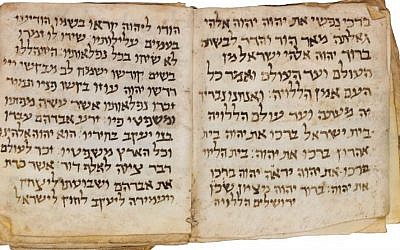 ברכי נפשי את יהוה יהוה אלהי
מאד הוד והדר לבשת
ברוך יהוה אלהי ישראל מן
העולם ועד העולם ואמר כל
העם אמן הללויה ואנחנו נברך
יה מעתה ועד עולם הללויה
בית ישראל ברכו את יהוה בית
אהרון ברכו את יהוה בית הלוי
ברכו את יהוה יראי יהוה ברכו
את יהוה ברוך יהוה מציון שכן
ירושלים הללויה
הודו ליהוה קראו בשמו הודיעו
בעמים עלילותיו שירו לו זמרו
לו שיחו בכל נפלאותיו התהללו
בשם קודשו ישמח לב מבקשי יי
דרשו יהוה עוזו בקשו פניו תמיד
זכרו נפלאותיו אשר עשה מופתיו
ומשפטי פיו זרע אברהם עבדו
בני יעקב בחיריו הוא יהוה אלהינו
הארץ משפטיו זכר לעולם
דבר ציוה לאלף דור אשר כרת
את אברהם ושבועתו ליצחק
ויעמידה ליעקב לחוק לישראל